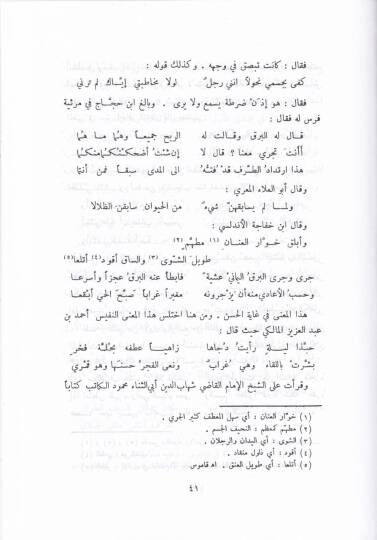 فقال : كانت تبصق في وجهه . وكذلك قوله :
كفى بجسمي نحولاً انني رجلٌ لولا مخاطبتي إيَّاك لم ترني
فقال : هو إذن ضرطة يسمع ولا يرى . وبالغ ابن حجاج في مرثية
فرس له فقال :
قال له البرق وقالت له الريح جميعاً وهُما ما هُما
أأنت تجري معنا ؟ قال لا إن شئتُ أضحكتُكما منكما
هذا ارتدادُ الطَّرف قد فُتُّه الى المدى سبقاً فمن أنتما
وقال أبو العلاء المعري :
ولمَّا لم يسابقهنَّ شيءٌ من الحيوان سابقن الظلالا
وقال ابن خفاجة الأندلسي :
وأبلق خوَّار العنان (١) مطهَّم (٢)
طويل الشَّوى (٣) والساق أقود (٤) أتلعا (٥)
جرى وجرى البرقُ اليماني عشيةً فأبطأ عنه البرقُ عجزاً وأسرعا
وحسب الأعادي منه أن يزجرونه مغيراً غراباً صبَّح الحي أبقعا
هذا المعنى في غاية الحسن . ومن هنا اختلس هذا المعنى النفيس أحمد بن
عبد العزيز المالكي حيث قال :
حبَّذا ليلةٍ رأيتُ دُجاها زاهياً عطفه بحلَّة فجرِ
بشَّرتْ باللقاء وهي غُرابٌ ونعى الفجرُ حسنَها وهو قمري
وقرأت على الشيخ الإمام القاضي شهاب الدين أبي الثناء محمود الكاتب كتاباً
(١) خوَّار العنان : أي سهل المعطف كثير الجري .
(٢) مطهَّم كمعظم : النحيف الجسم .
(٣) الشوى : أي اليدان والرجلان .
(٤) أقود : أي ذلول منقاد .
(٥) أتلعا : أي طويل العنق . اهـ قاموس
٤١